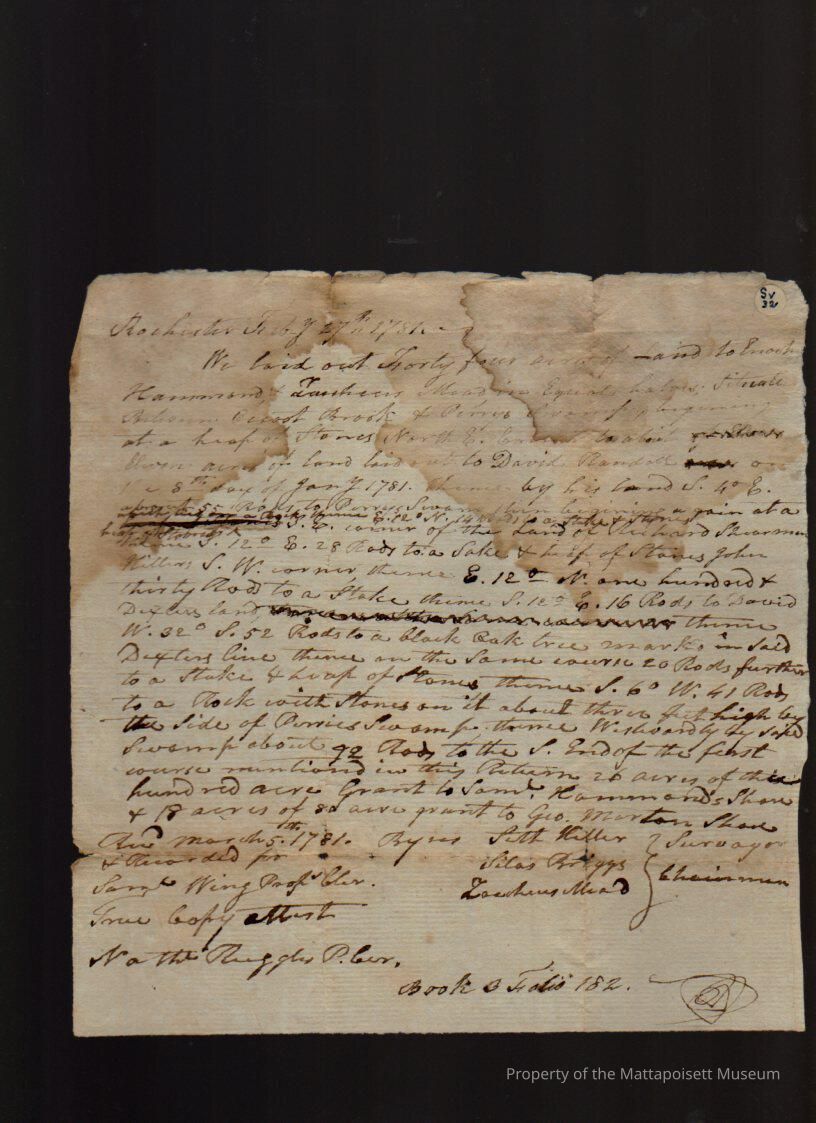 SV
32
Rochester Feb.y 27th 1781.
We laid out Forty four acres of Land to Enoch
Hammond & Zaccheus Mead in Equal halves. Situate
Brook & Perries Swamp,
at a heap of Stones North E.
acres of land laid out to David Randall on
8th day of Jan.y 1781. thence by his land S. 4° E.
55 Rods to Perries Swamp then begining again at a
heap of Stones S. E. corner of the Land of Richard Shearman
thence S. 12° E. 28 Rods to a Stake & heap of Stones John
Hillers S. W. corner, thence E. 12° N. one hundred &
thirty Rod to a Stake thence S. 12° E. 16 Rods to David
Dexters land, thence
W. 32° S. 52 Rods to a black Oak tree markd in said
Dexters line thence on the Same course 20 Rods further
to a Stake & heap of Stones thence S. 6° W. 41 Rods
to a Rock with Stones on it about three feet high by
the Side of Perries Swamp, thence Westwardly by said
Swamp about 92 Rods to the S. End of the first
course mentiond in this Return 26 acres of the
hundred acre Grant to Saml. Hammonds Share
& 18 acres of 80 acre grant to Geo. Morton Share
Recd. March 5th 1781. By us Seth Hiller } Surveyor
& Recorded pr Silas Briggs
Saml Wing Props Cler. Zaccheus Mead } Chairmen
True Copy attest
Nathl Ruggles P. Cler.
Book 3 Folio 182.
Property of the Mattapoisett Museum